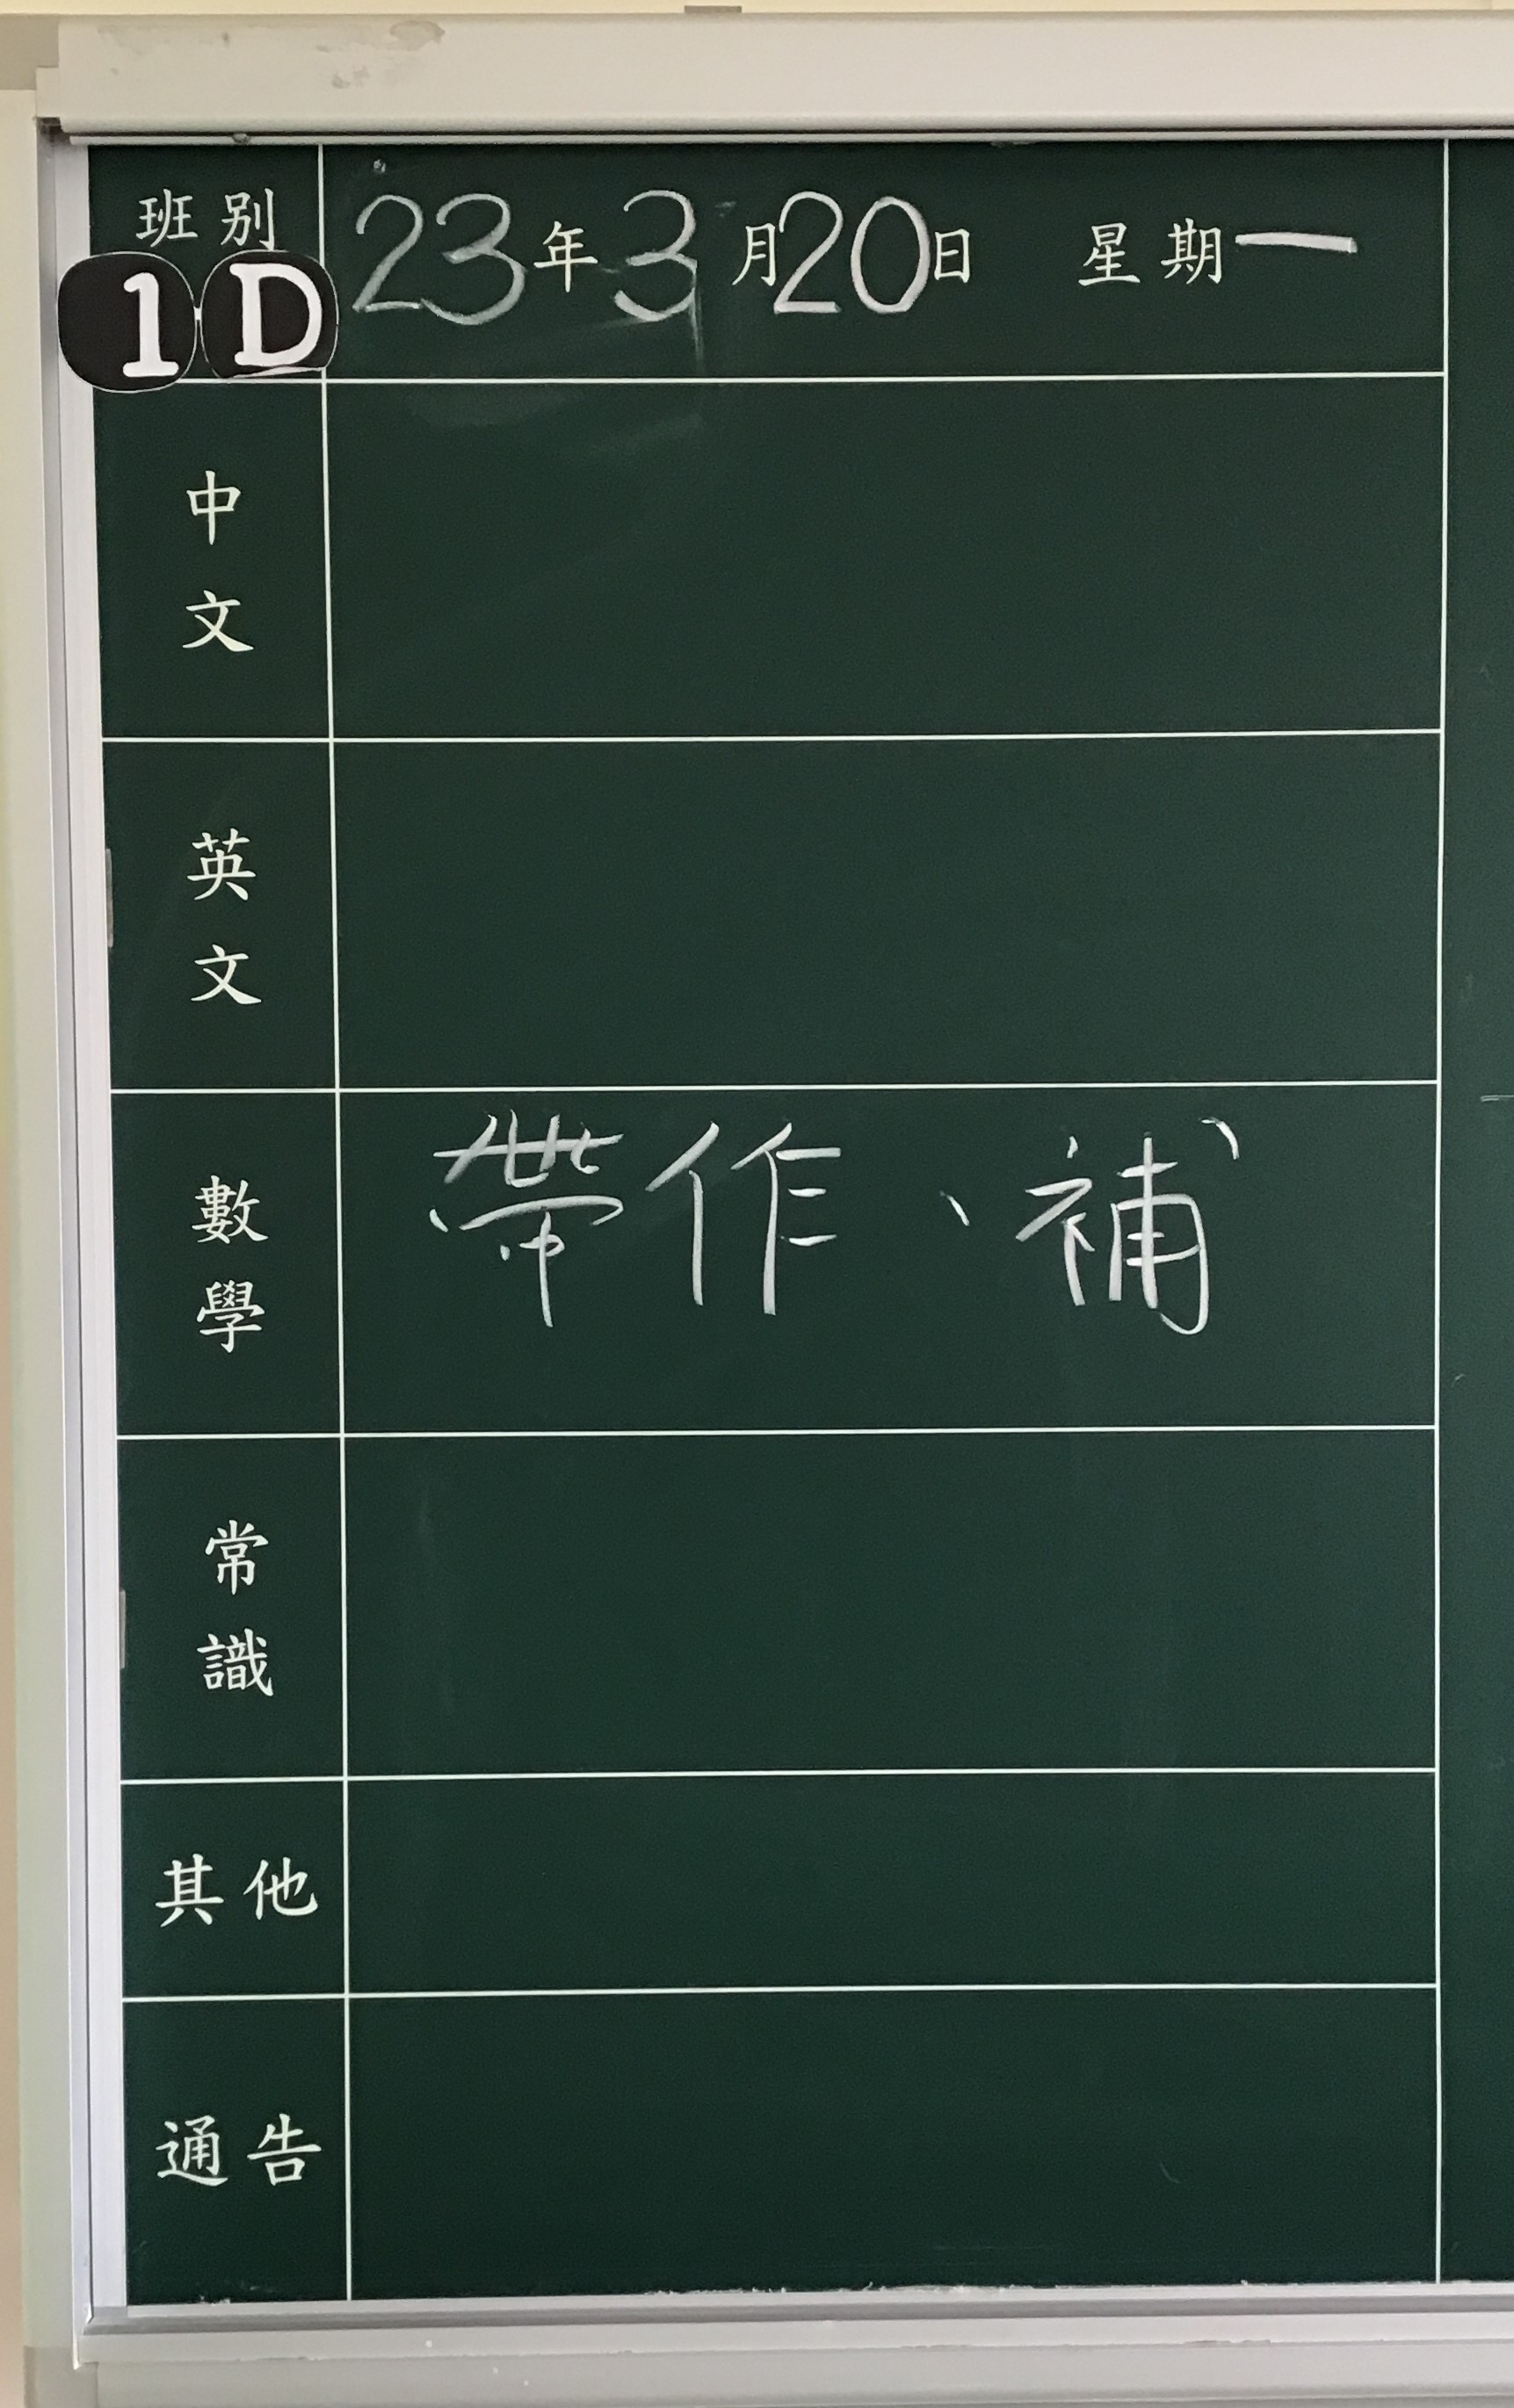 班別
1D
23年3月20日 星期一
中文
英文
數學
帶作、補
常識
其他
通告